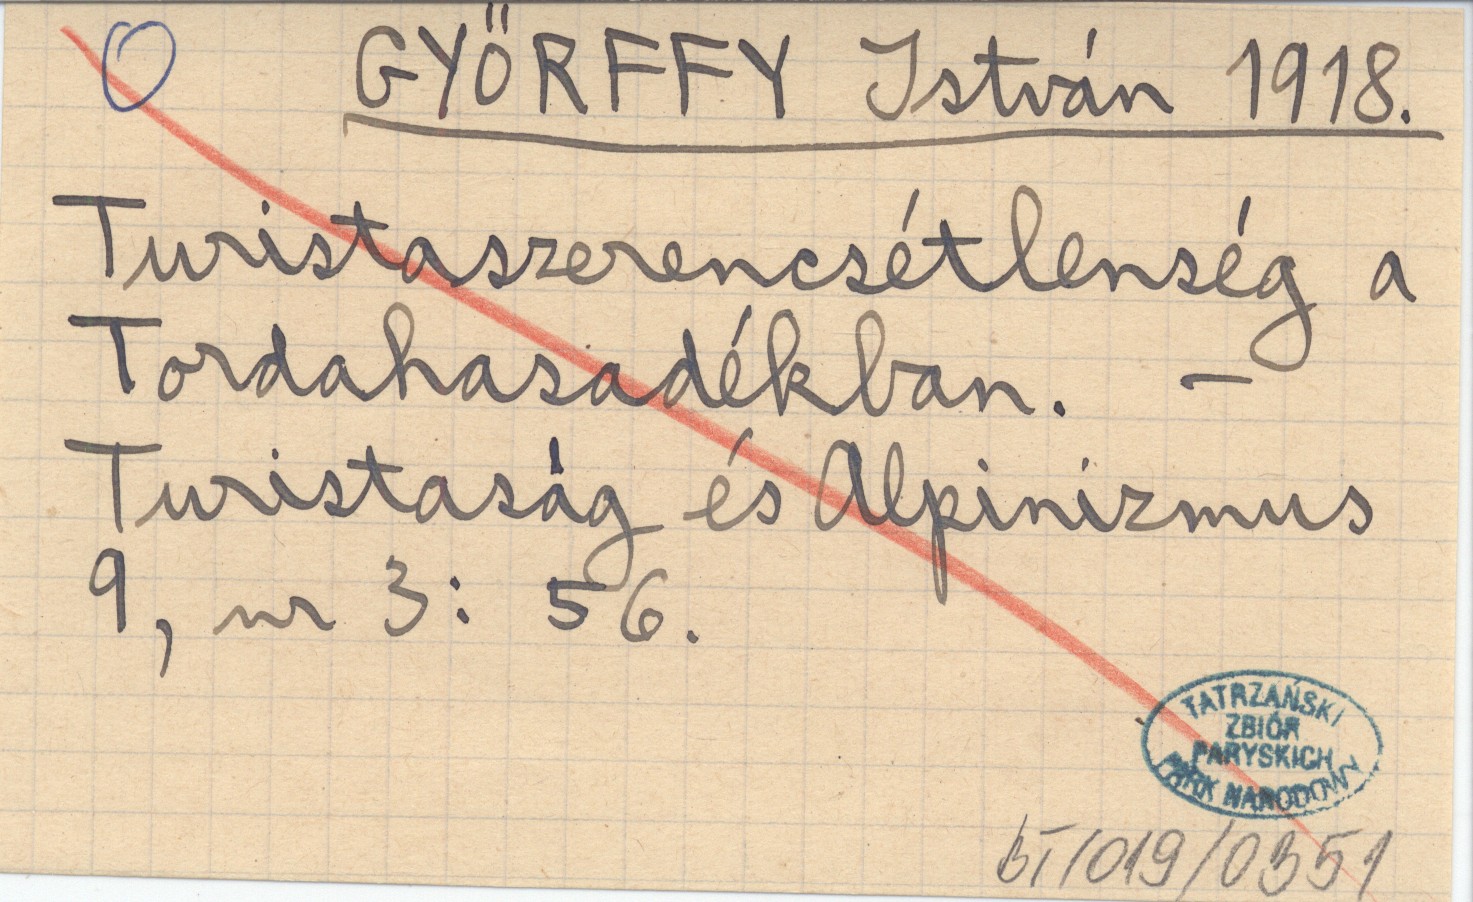 GYŐRFFY István 1918.
Turistaszerencsétlenség a
Tordahasadékban. –
Turistaság és Alpinizmus
9, nr 3: 56.
TATRZAŃSKI
ZBIÓR
PARYSKICH
PARK NARODOWY
bT/019/0351